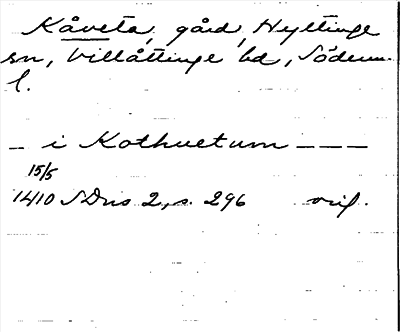 Kåveta, gård, Hyltinge
sn, Villåttinge hd, Söderm.
l.
_ i Kothuetum _ _ _
15/5
1410 SDns 2, s. 296 orig.